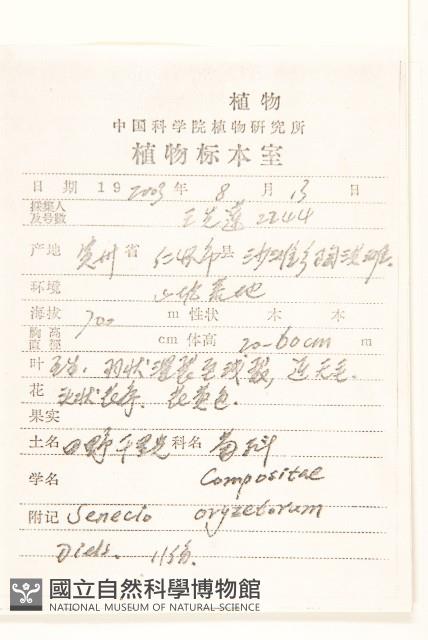 植物
中国科学院植物研究所
植物标本室
日期 19 2003 年 8 月 13 日
採集人
及号数 2244
产地 贵州省 仁怀市县
环境 山坡 地
海拔 700 m 性状 木 本
胸高
直径 cm 体高 20-60cm m
叶 互生, 羽状深裂至
花 状花序. 花黄色.
果实
土名 野千里光 科名 菊科
学名 Compositae
附记 Senecio oryzetorum
Diels. 11份.
國立自然科學博物館
NATIONAL MUSEUM OF NATURAL SCIENCE